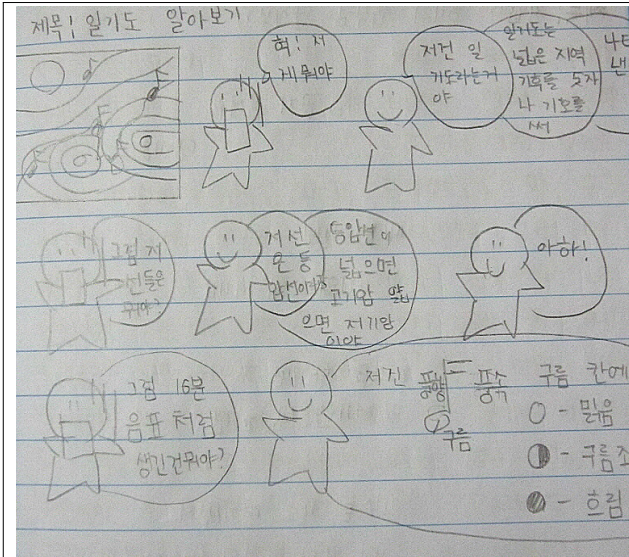 제목! 일기도 알아보기
헉! 저
게 뭐야
저건 일
기도라는거
야
일기도는
넓은 지역
기후를 숫자
나 기호를
써
나타
낸
그럼 저
선들은
뭐야?
저 선
은 등
압선이야
등압선이
넓으면
고기압 얇
으면 저기압
이야
아하!
그럼 16분
음표 처럼
생긴건뭐야?
저긴
풍향
풍속
구름
구름 칸에
○ - 맑음
◑ - 구름조
- 흐림